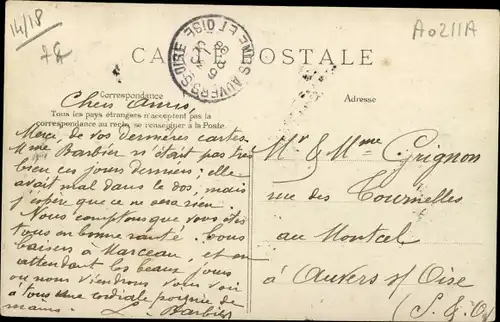 14/18
A0211A
CARTE POSTALE
AUVERS S OISE
SEINE ET OISE
Correspondance
Adresse
Tous les pays étrangers n'acceptent pas la
correspondance au recto, se renseigner à la Poste.
Chers Amis,
Merci de vos dernières cartes.
Mme Barbier n'était pas très
bien ces jours derniers; elle
avait mal dans le dos, mais
j'espère que ce ne sera rien.
Nous comptons que vous êtes
tous en bonne santé. Bons
baisers à Marceau, et en
attendant les beaux jours
où nous viendrons vous voir
à tous une cordiale poignée de
mains. L. Barbier
Mr & Mme Grignon
rue des Tournelles
au Montcel
à Auvers s/ Oise
(S. & O.)